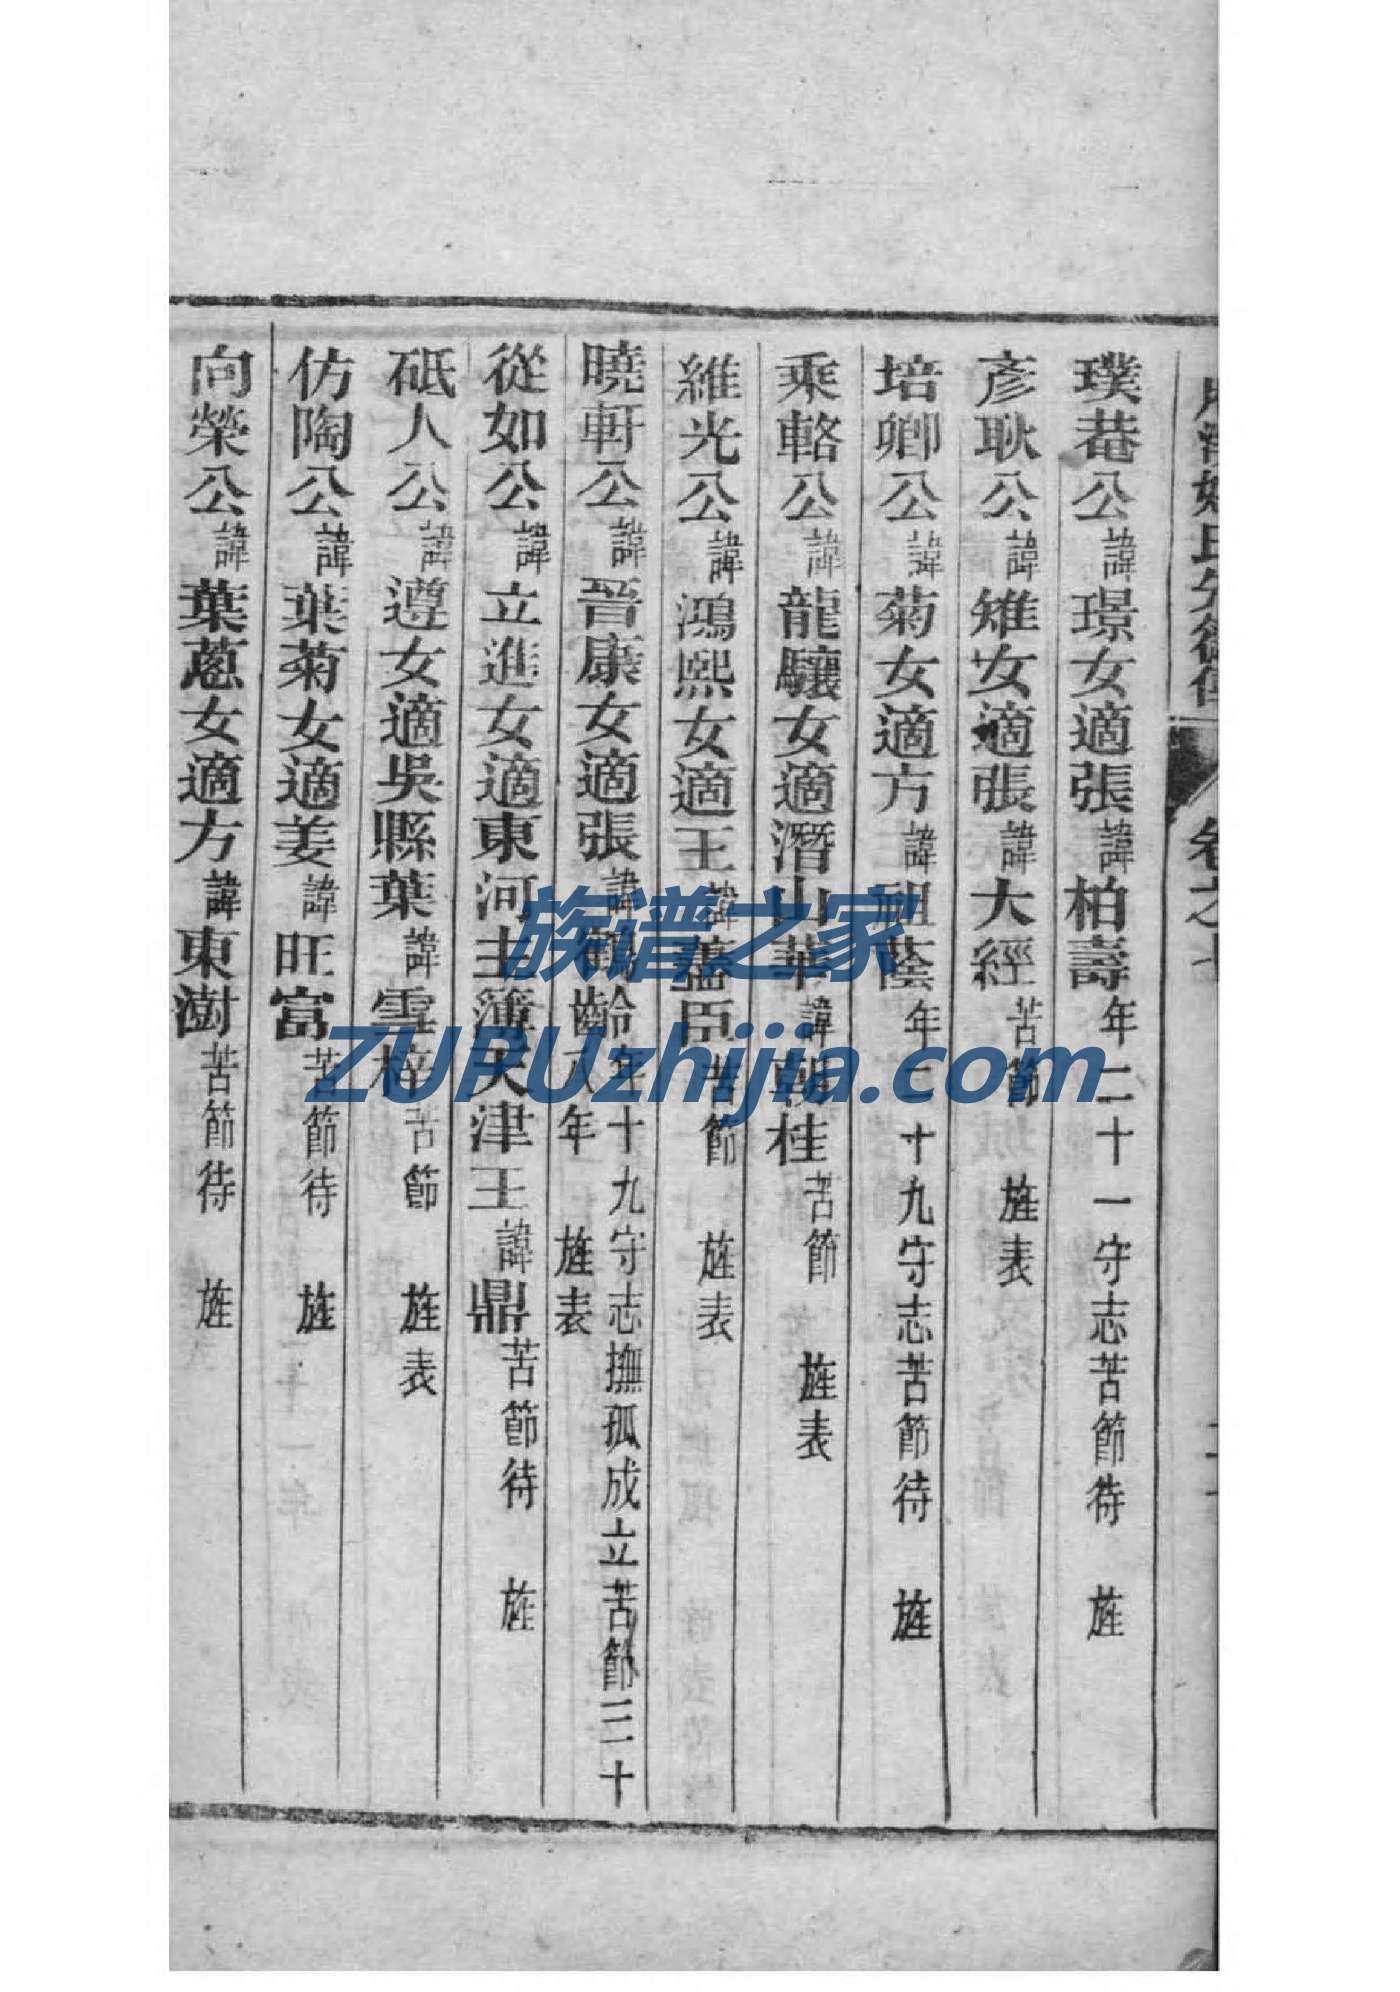 璞菴公諱璟女適張諱柏壽年二十一守志苦節待　旌
彥耿公諱雉女適張諱大經苦節　旌表
培卿公諱菊女適方諱祖蔭年二十九守志苦節待　旌
乘輅公諱龍驤女適潛山華諱朝桂苦節　旌表
維光公諱鴻熙女適王諱藎臣苦節　旌表
曉軒公諱晉康女適張諱鶴齡年十九守志撫孤成立苦節三十
八年　旌表
從如公諱立進女適東河主簿天津王諱鼎苦節待　旌
砥人公諱遵女適吳縣葉諱雲梓苦節　旌表
仿陶公諱葉菊女適姜諱旺富苦節待　旌
向榮公諱葉蔥女適方諱東澍苦節待　旌
族谱之家
ZUPUzhijia.com